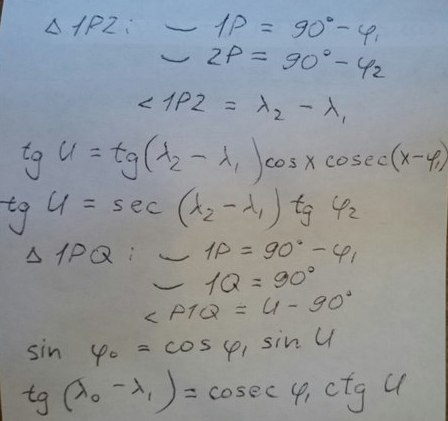 Δ 1P2: ⌣ 1P = 90° - φ₁
⌣ 2P = 90° - φ₂
< 1P2 = λ₂ - λ₁
tg U = tg(λ₂ - λ₁)cos x cosec(x-φ₁)
tg U = sec (λ₂ - λ₁) tg φ₂
Δ 1PQ: ⌣ 1P = 90° - φ₁
⌣ 1Q = 90°
< P1Q = U - 90°
sin φ₀ = cos φ₁ sin U
tg (λ₀ - λ₁) = cosec φ₁ ctg U